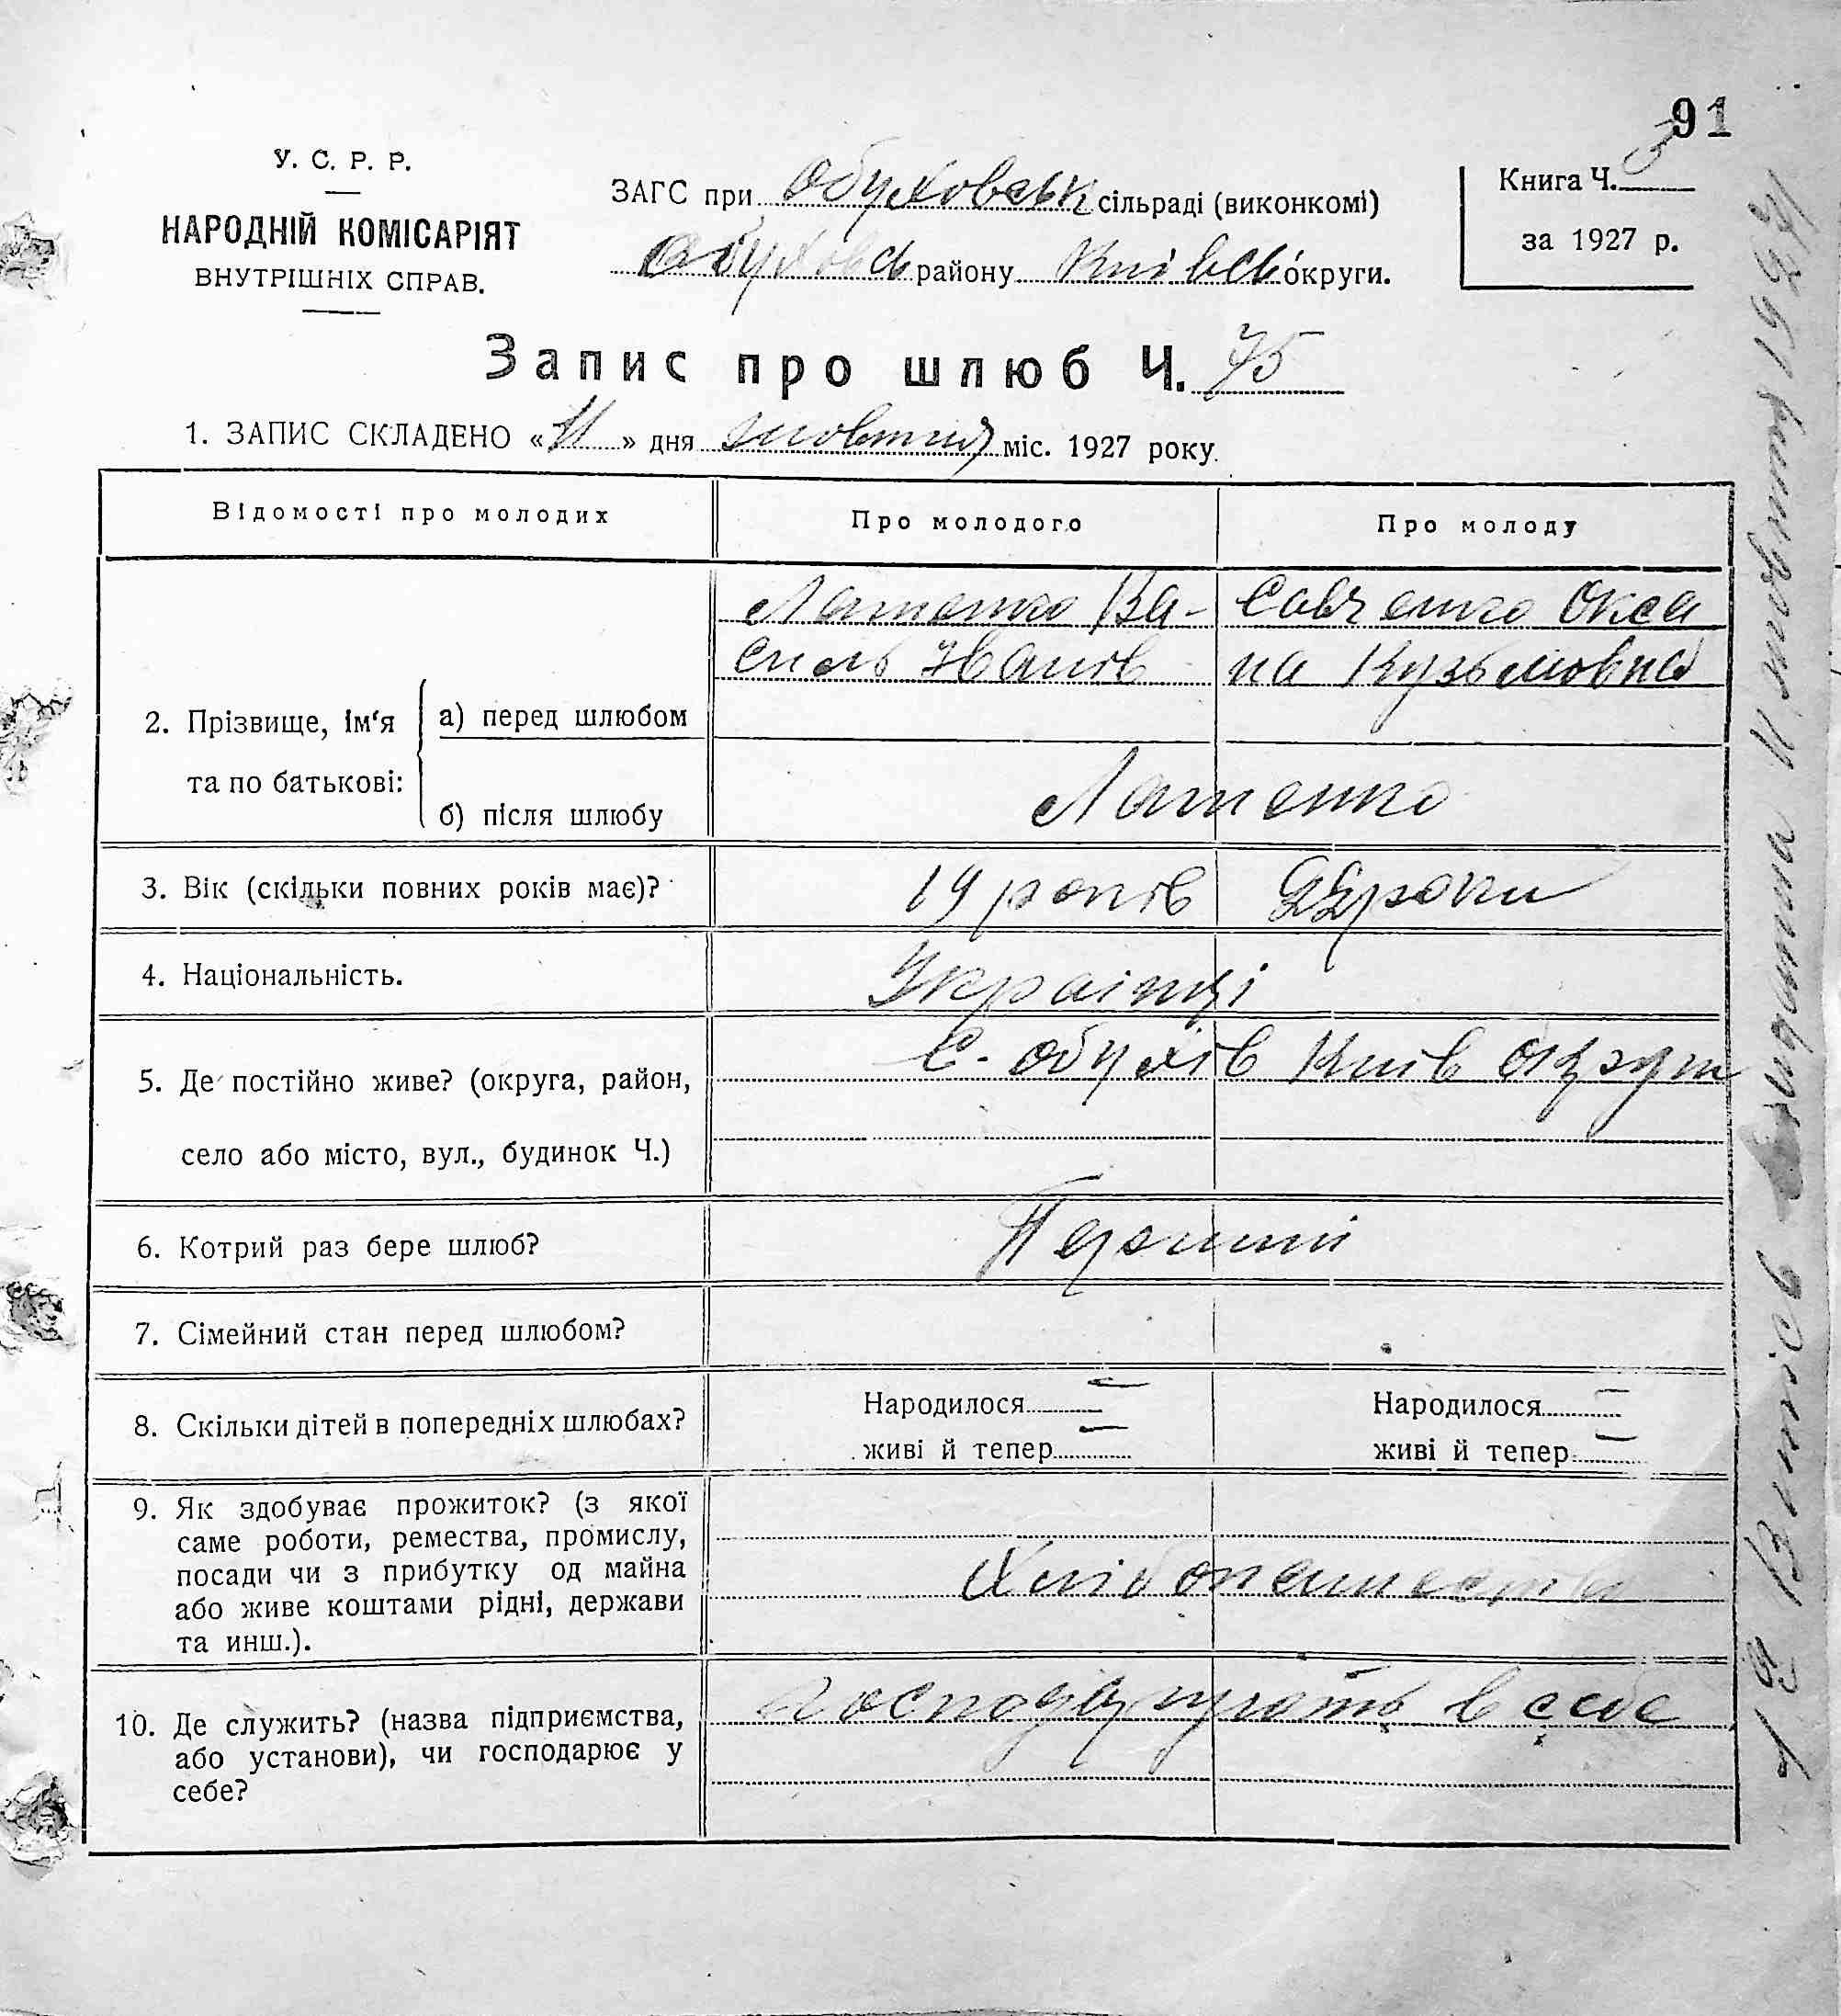 91
У. С. Р. Р.
НАРОДНІЙ КОМІСАРІЯТ
ВНУТРІШНІХ СПРАВ.
ЗАГС при Обуховськ сільраді (виконкомі)
Обуховсь району Київсь округи.
Книга Ч. 3
за 1927 р.
Запис про шлюб Ч. 75
1. ЗАПИС СКЛАДЕНО «11» дня жовтня міс. 1927 року.
Відомості про молодих
Про молодого
Про молоду
2. Прізвище, ім‘я та по батькові:
а) перед шлюбом
Латенко Ва-
силь Іванів
Савченко Окса
на Кузьмовна
б) після шлюбу
Латенко
3. Вік (скільки повних років має)?
19 років
22 роки
4. Національність.
Українці
5. Де постійно живе? (округа, район,
село або місто, вул., будинок Ч.)
с. Обухів Київ округи
6. Котрий раз бере шлюб?
Перший
7. Сімейний стан перед шлюбом?
8. Скільки дітей в попередніх шлюбах?
Народилося —
живі й тепер —
Народилося —
живі й тепер —
9. Як здобуває прожиток? (з якої
саме роботи, ремества, промислу,
посади чи з прибутку од майна
або живе коштами рідні, держави
та инш.).
Хлібопашества
10. Де служить? (назва підприємства,
або установи), чи господарює у
себе?
господарюють в себе
Витяс видати 11 жовтня 1927